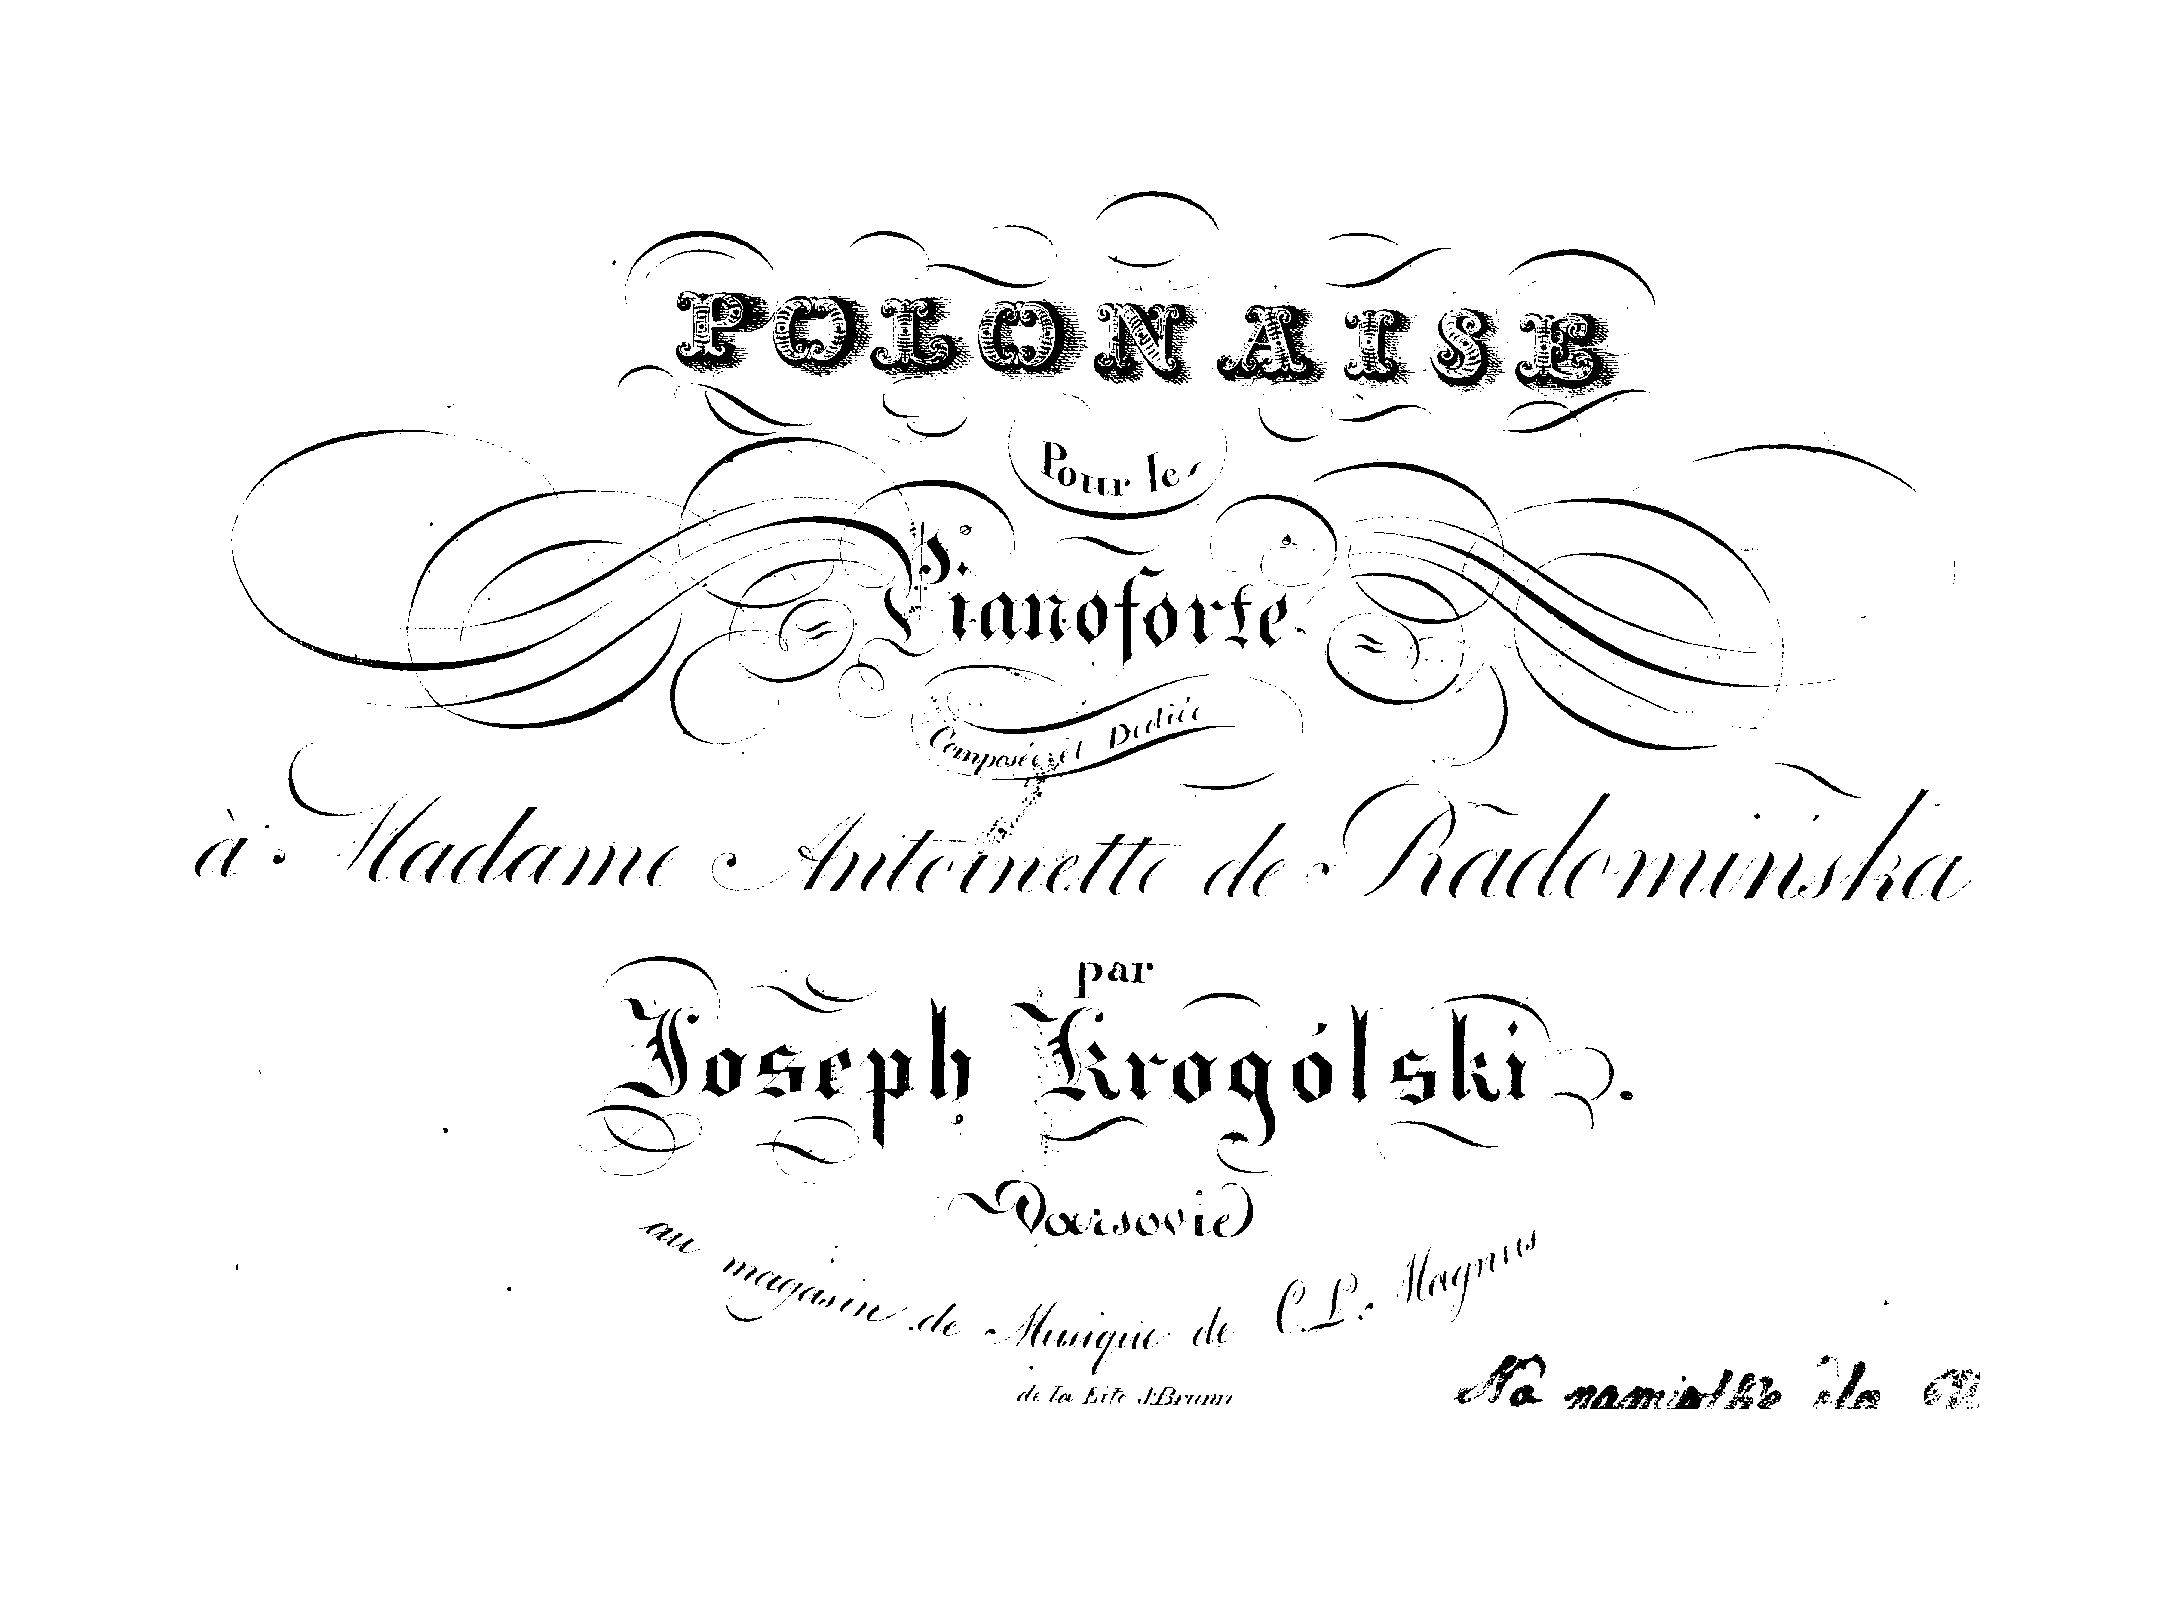 POLONAISE
Pour le
Pianoforte
Composée et Dediée
à Madame Antoinette de Radomińska
par
Joseph Krogólski.
Varsovie
au magasin de Musique de C. L. Magnus
de la Lite J. Brunn
Na